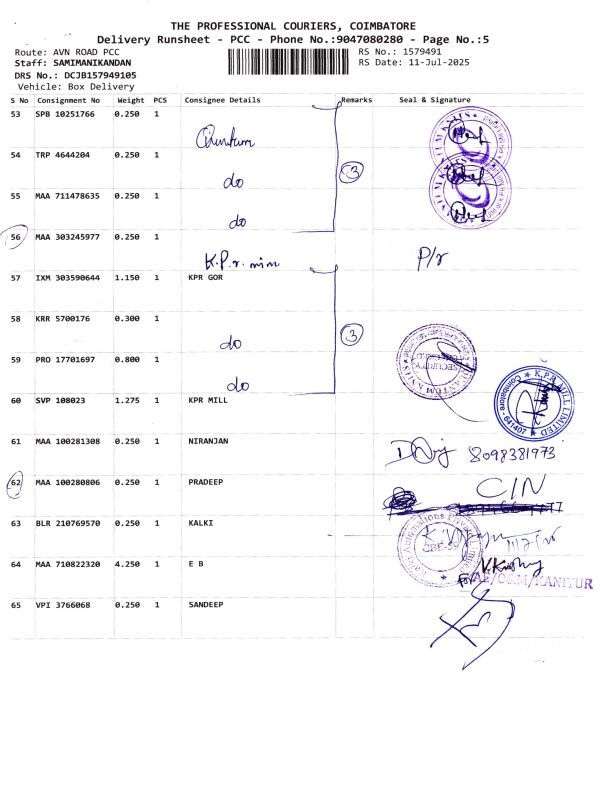 THE PROFESSIONAL COURIERS, COIMBATORE
Delivery Runsheet - PCC - Phone No.:9047080280 - Page No.:5
Route: AVN ROAD PCC
RS No.: 1579491
Staff: SAMIMANIKANDAN
RS Date: 11-Jul-2025
DRS No.: DCJB157949105
Vehicle: Box Delivery
S No Consignment No Weight PCS Consignee Details Remarks Seal & Signature
53 SPB 10251766 0.250 1
Quntum
54 TRP 4644204 0.250 1
do 3
55 MAA 711478635 0.250 1
do
56 MAA 303245977 0.250 1
K.P.r. mim P/r
57 IXM 303590644 1.150 1 KPR GOR
58 KRR 5700176 0.300 1
do 3
59 PRO 17701697 0.800 1
do
60 SVP 108023 1.275 1 KPR MILL
K.P.R. MILL LIMITED
Coimbatore - 641407
61 MAA 100281308 0.250 1 NIRANJAN
8098381973
62 MAA 100280806 0.250 1 PRADEEP
C/N
63 BLR 210769570 0.250 1 KALKI
64 MAA 710822320 4.250 1 E B
AE/O&M/KANIYUR
65 VPI 3766068 0.250 1 SANDEEP